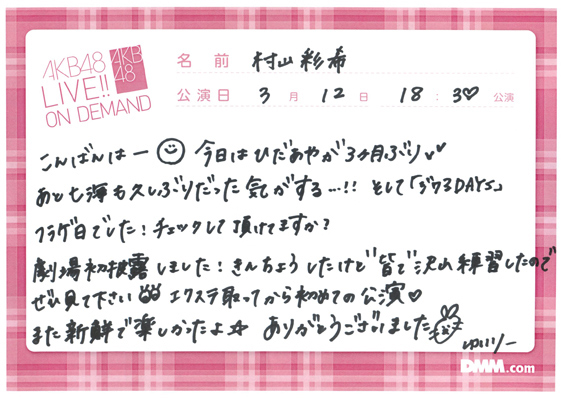 AKB48
LIVE!!
ON DEMAND
AKB
48
名前 村山彩希
公演日 3月12日 18:30公演
こんばんはー 今日はひだあやが3ヶ月ぶり♡♡
あと七海も久しぶりだった気がする…!! そして「ジワるDAYS」
フラゲ日でした！チェックして頂けてますか？
劇場初披露しました！きんちょうしたけど皆で沢山練習したので
ぜひ見て下さい エクステ取ってから初めての公演♡
また新鮮で楽しかったよ☆ ありがとうございました
ゆいりー
DMM.com